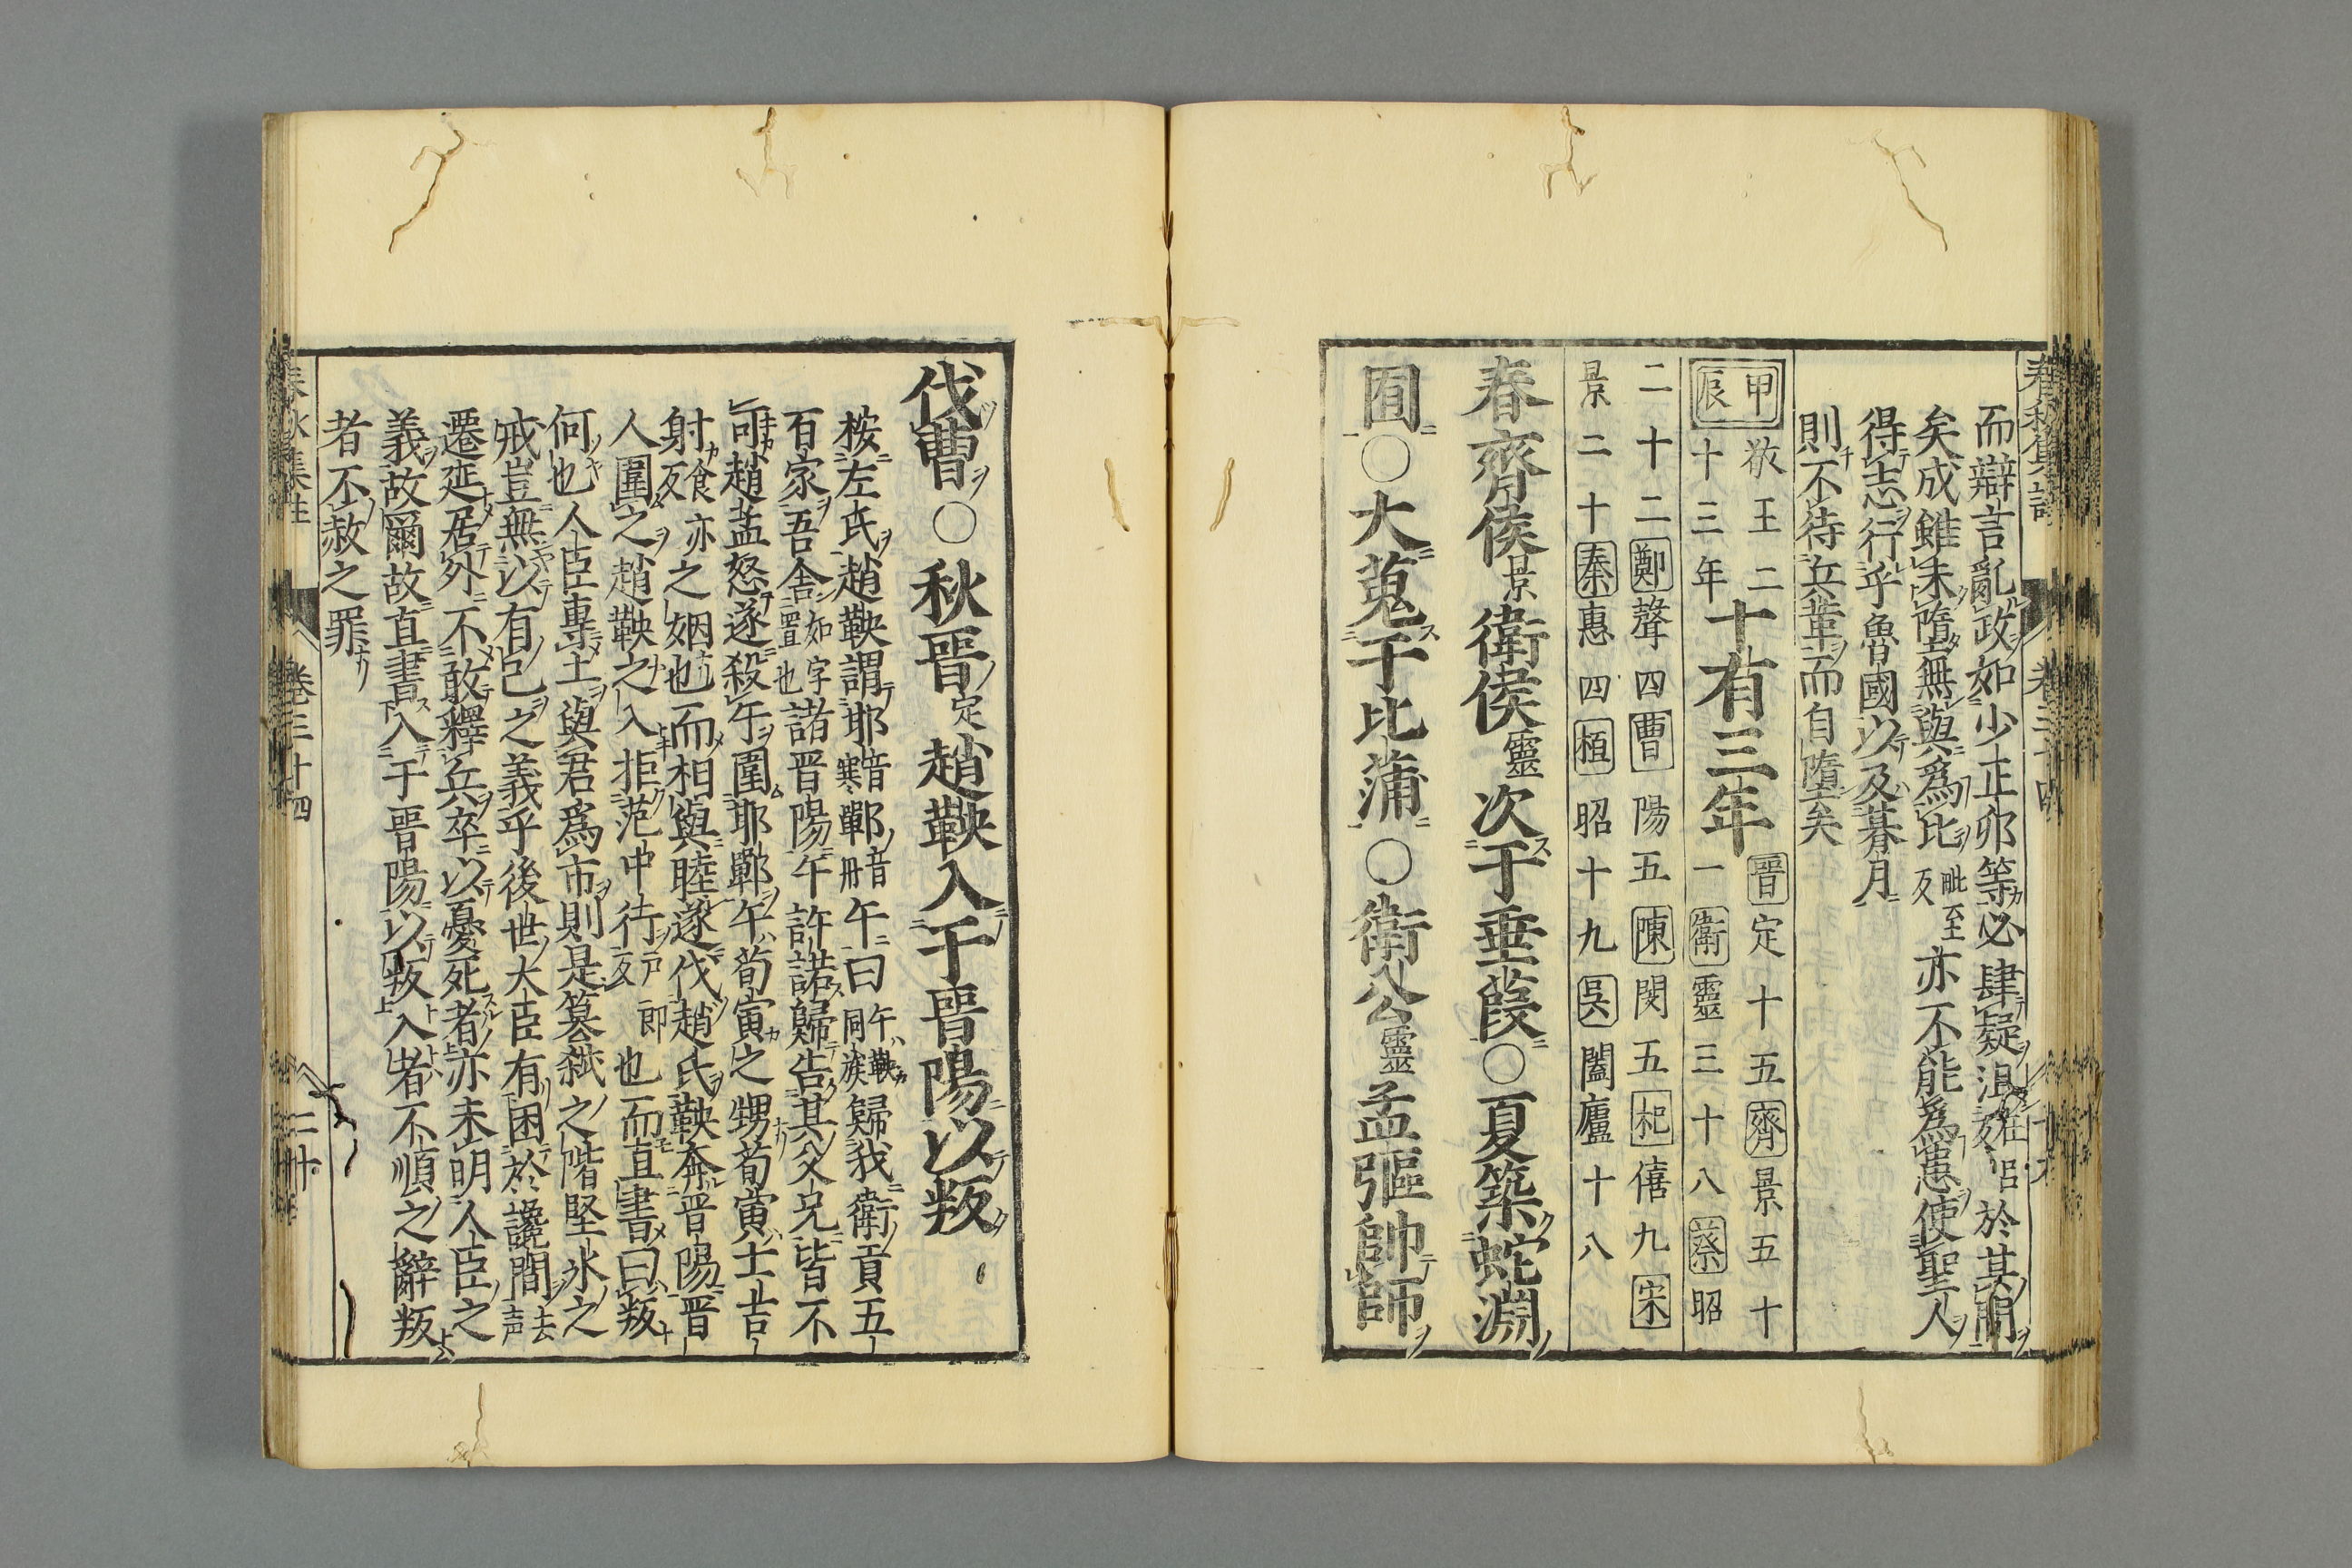 而辯言亂政如少正卯等必肆疑沮在呂反於其間
矣成雖未墮無與爲比毗至反亦不能爲患使聖人
得志行乎魯國以及朞月
則不待兵革而自墮矣
甲辰 敬王二十三年 十有三年 晋定十五齊景五十一衛靈三十八蔡昭
二十二鄭聲四曹陽五陳閔五杞僖九宋
景二十秦惠四楚昭十九吳闔廬十八
春齊侯景衛侯靈次于垂葭〇夏築蛇淵
囿〇大蒐于比蒲〇衛公靈孟彄帥師
伐曹〇秋晉定趙鞅入于晉陽以叛
按左氏趙鞅謂邯音寒鄲音冊午曰午鞅同族歸我衛貢五
百家吾舍如字置也諸晉陽午許諾歸告其父兄皆不
可趙孟怒遂殺午圍邯鄲午荀寅之甥荀寅士吉
射食亦反之姻也而相與睦遂伐趙氏鞅奔晉陽晉
人圍之趙鞅之入拒范中行戸郎反也而直書曰叛
何也人臣專土與君爲市則是簒弑之階堅氷之
戒豈無以有己之義乎後世大臣有困於讒間去声
遷延居外不敢釋兵卒以憂死者亦未明人臣之
義故爾故直書入于晉陽以叛入者不順之辭叛
者不赦之罪
春秋集註 卷三十四 二十